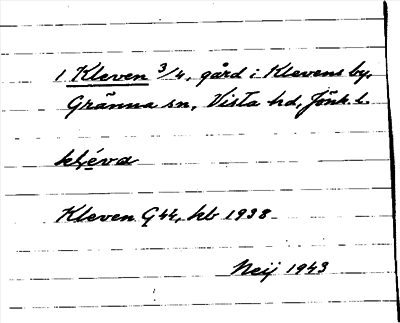 1 Kleven 3/4, gård i Klevens by,
Gränna sn, Vista hd, Jönk. l.
kléva
Kleven G44, hb 1938
Neij 1943